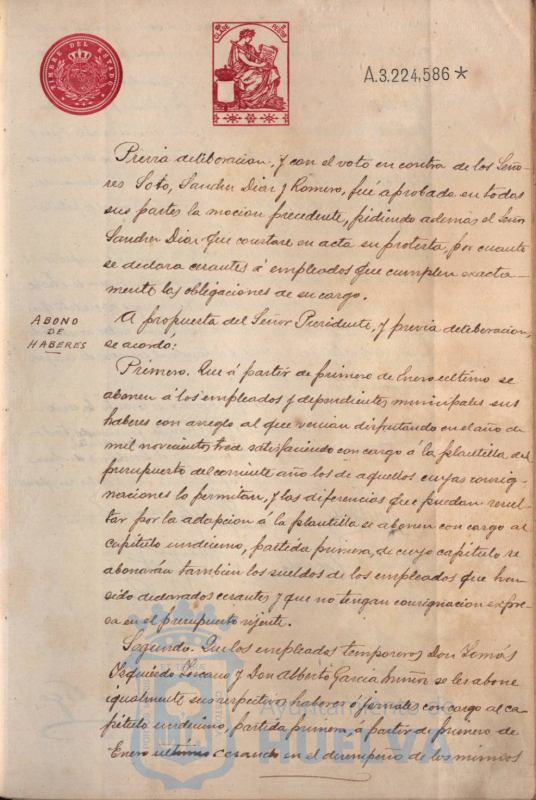 TIMBRE DEL ESTADO
CLASE
A.3.224.586*
Previa deliberacion, y con el voto en contra de los Seño-
res Soto, Sanchez Diaz y Romero, fué aprobada en todas
sus partes la mocion precedente, pidiendo además el Señor
Sanchez Diaz que constare en acta su protesta, por cuanto
se declara cesantes á empleados que cumplen exacta-
mente las obligaciones de su cargo.
ABONO
DE
HABERES
A propuesta del Señor Presidente, y previa deliberacion,
se acordó:
Primero. Que á partir de primero de Enero ultimo se
abonen á los empleados y dependientes municipales sus
haberes con arreglo al que venian disfrutando en el año de
mil novecientos trece satisfaciendo con cargo á la plantilla del
presupuesto del corriente año los de aquellos cuyas consig-
naciones lo permitan, y las diferencias que puedan resul-
tar por la adapcion á la plantilla se abonen con cargo al
capitulo undécimo, partida primera, de cuyo capitulo se
abonarán tambien los sueldos de los empleados que han
sido declarados cesantes y que no tengan consignacion expre-
sa en el presupuesto vijente.
Segundo. Que los empleados temporeros Don Tomás
Izquierdo Lozano y Don Alberto Garcia Muñoz se les abone
igualmente sus respectivos haberes ó jornales con cargo al ca-
pitulo undécimo, partida primera, a partir de primero de
Enero ultimo cesando en el desempeño de los mismos
Ayuntamiento de
HUELVA